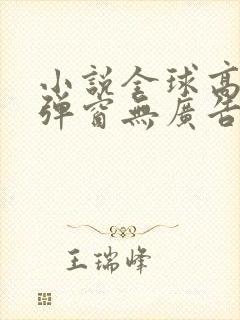 小說全球高
彈窗無廣告
王瑞峰